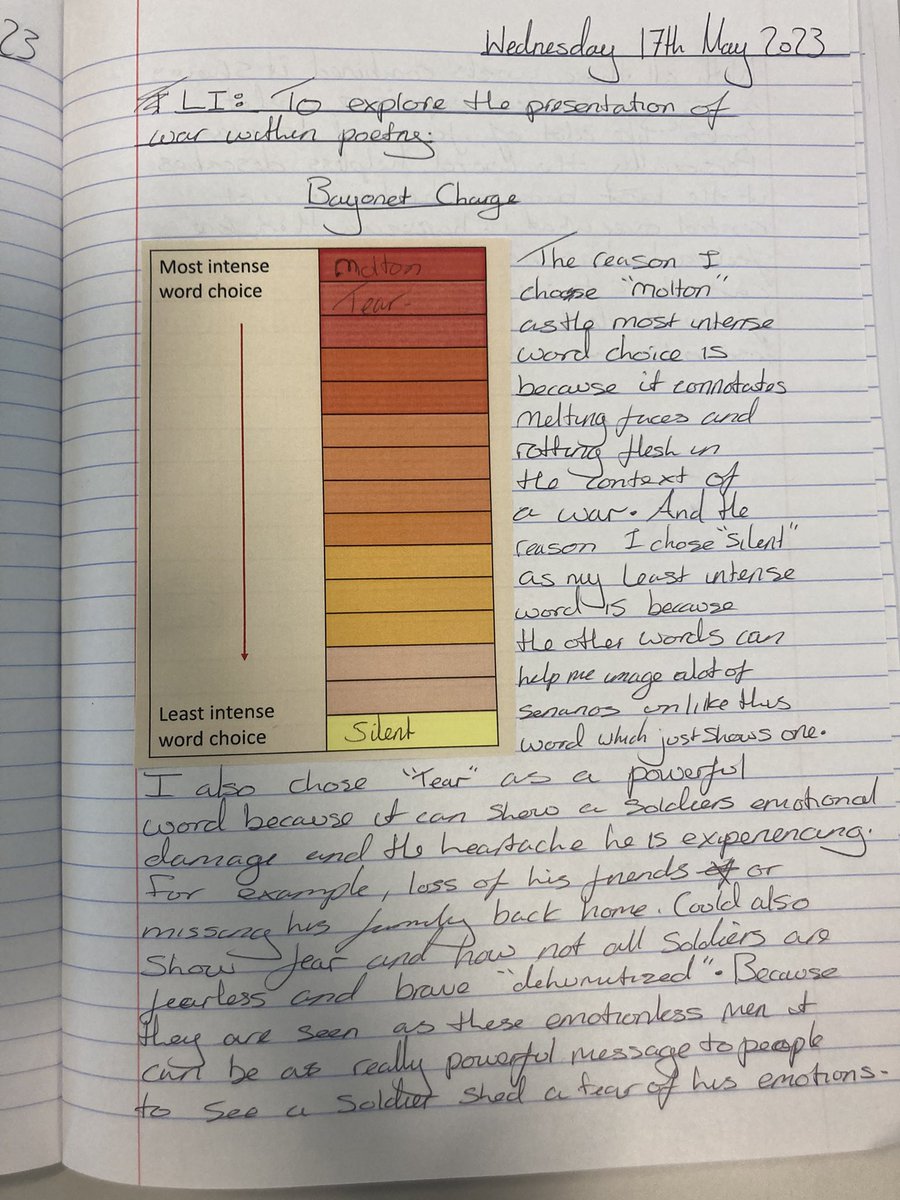 23
Wednesday 17th May 2023
LI: To explore the presentation of
war within poetry.
Bayonet Charge
Most intense
word choice
Molton
Tear
Least intense
word choice
Silent
The reason I
choose "molton"
as the most intense
word choice is
because it connotates
melting faces and
rotting flesh in
the context of
a war. And the
reason I chose "silent"
as my least intense
word is because
the other words can
help me image alot of
senarios unlike this
word which just shows one.
I also chose "Tear" as a powerful
word because it can show a soldiers emotional
damage and the heartache he is experiencing.
For example, loss of his friends or
missing his family back home. Could also
show fear and how not all soldiers are
fearless and brave "dehumutized". Because
they are seen as these emotionless men it
can be as really powerful message to people
to see a soldier shed a tear of his emotions.